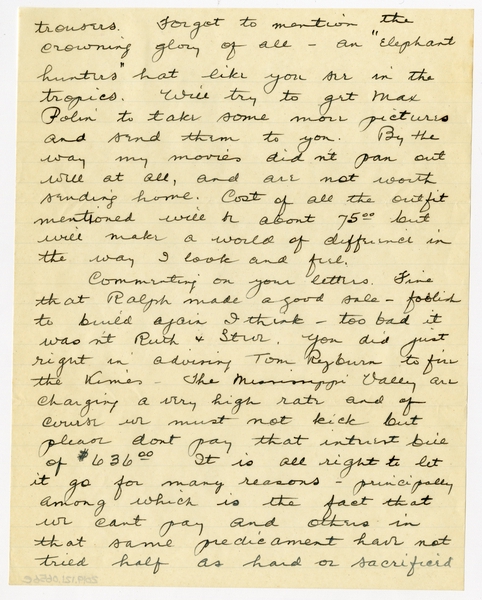 trousers. Forgot to mention the
crowning glory of all - an "Elephant
hunters" hat like you see in the
tropics. Will try to get Max
Polin to take some more pictures
and send them to you. By the
way my movies didn't pan out
well at all, and are not worth
sending home. Cost of all the outfit
mentioned will be about 75.00 but
will make a world of difference in
the way I look and feel.
Commenting on your letters. Fine
that Ralph made a good sale - foolish
to build again I think - too bad it
wasn't Ruth & Stew. You did just
right in advising Tom Reyburn to fix
the Kimes - The Mississippi Valley are
charging a very high rate and of
course we must not kick but
please dont pay that interest bill
of $636.00 It is all right to let
it go for many reasons - principally
among which is the fact that
we cant pay and others in
that same predicament have not
tried half as hard or sacrificed